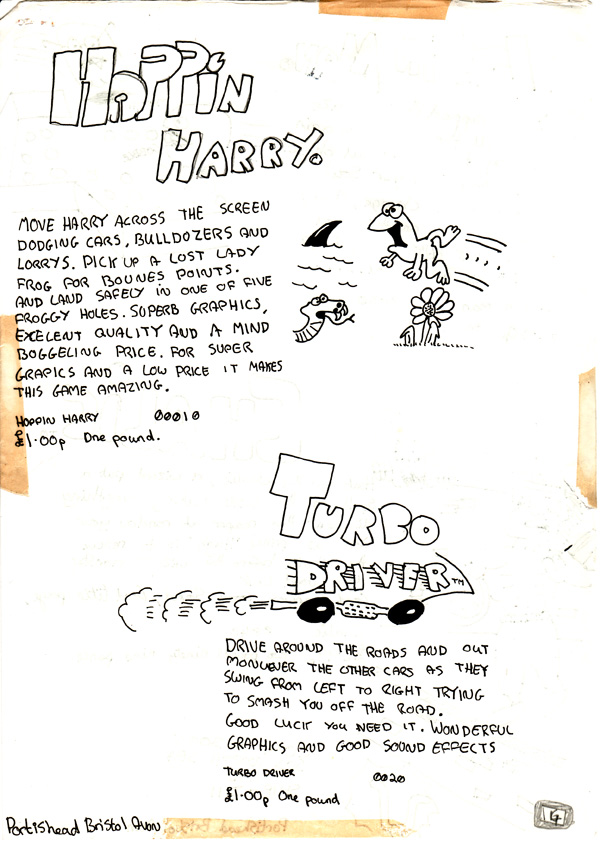 HOPPIN
HARRY.
MOVE HARRY ACROSS THE SCREEN
DODGING CARS, BULLDOZERS AND
LORRYS. PICK UP A LOST LADY
FROG FOR BOUNES POINTS.
AND LAND SAFELY IN ONE OF FIVE
FROGGY HOLES. SUPERB GRAPHICS,
EXELENT QUALITY AND A MIND
BOGGELING PRICE. FOR SUPER
GRAPICS AND A LOW PRICE IT MAKES
THIS GAME AMAZING.
HOPPIN HARRY 00010
£1.00p One pound.
TURBO
DRIVER™
DRIVE AROUND THE ROADS AND OUT
MONUEVER THE OTHER CARS AS THEY
SWING FROM LEFT TO RIGHT TRYING
TO SMASH YOU OFF THE ROAD.
GOOD LUCK YOU NEED IT. WONDERFUL
GRAPHICS AND GOOD SOUND EFFECTS
TURBO DRIVER 0020
£1.00p One pound
Portishead Bristol Avon